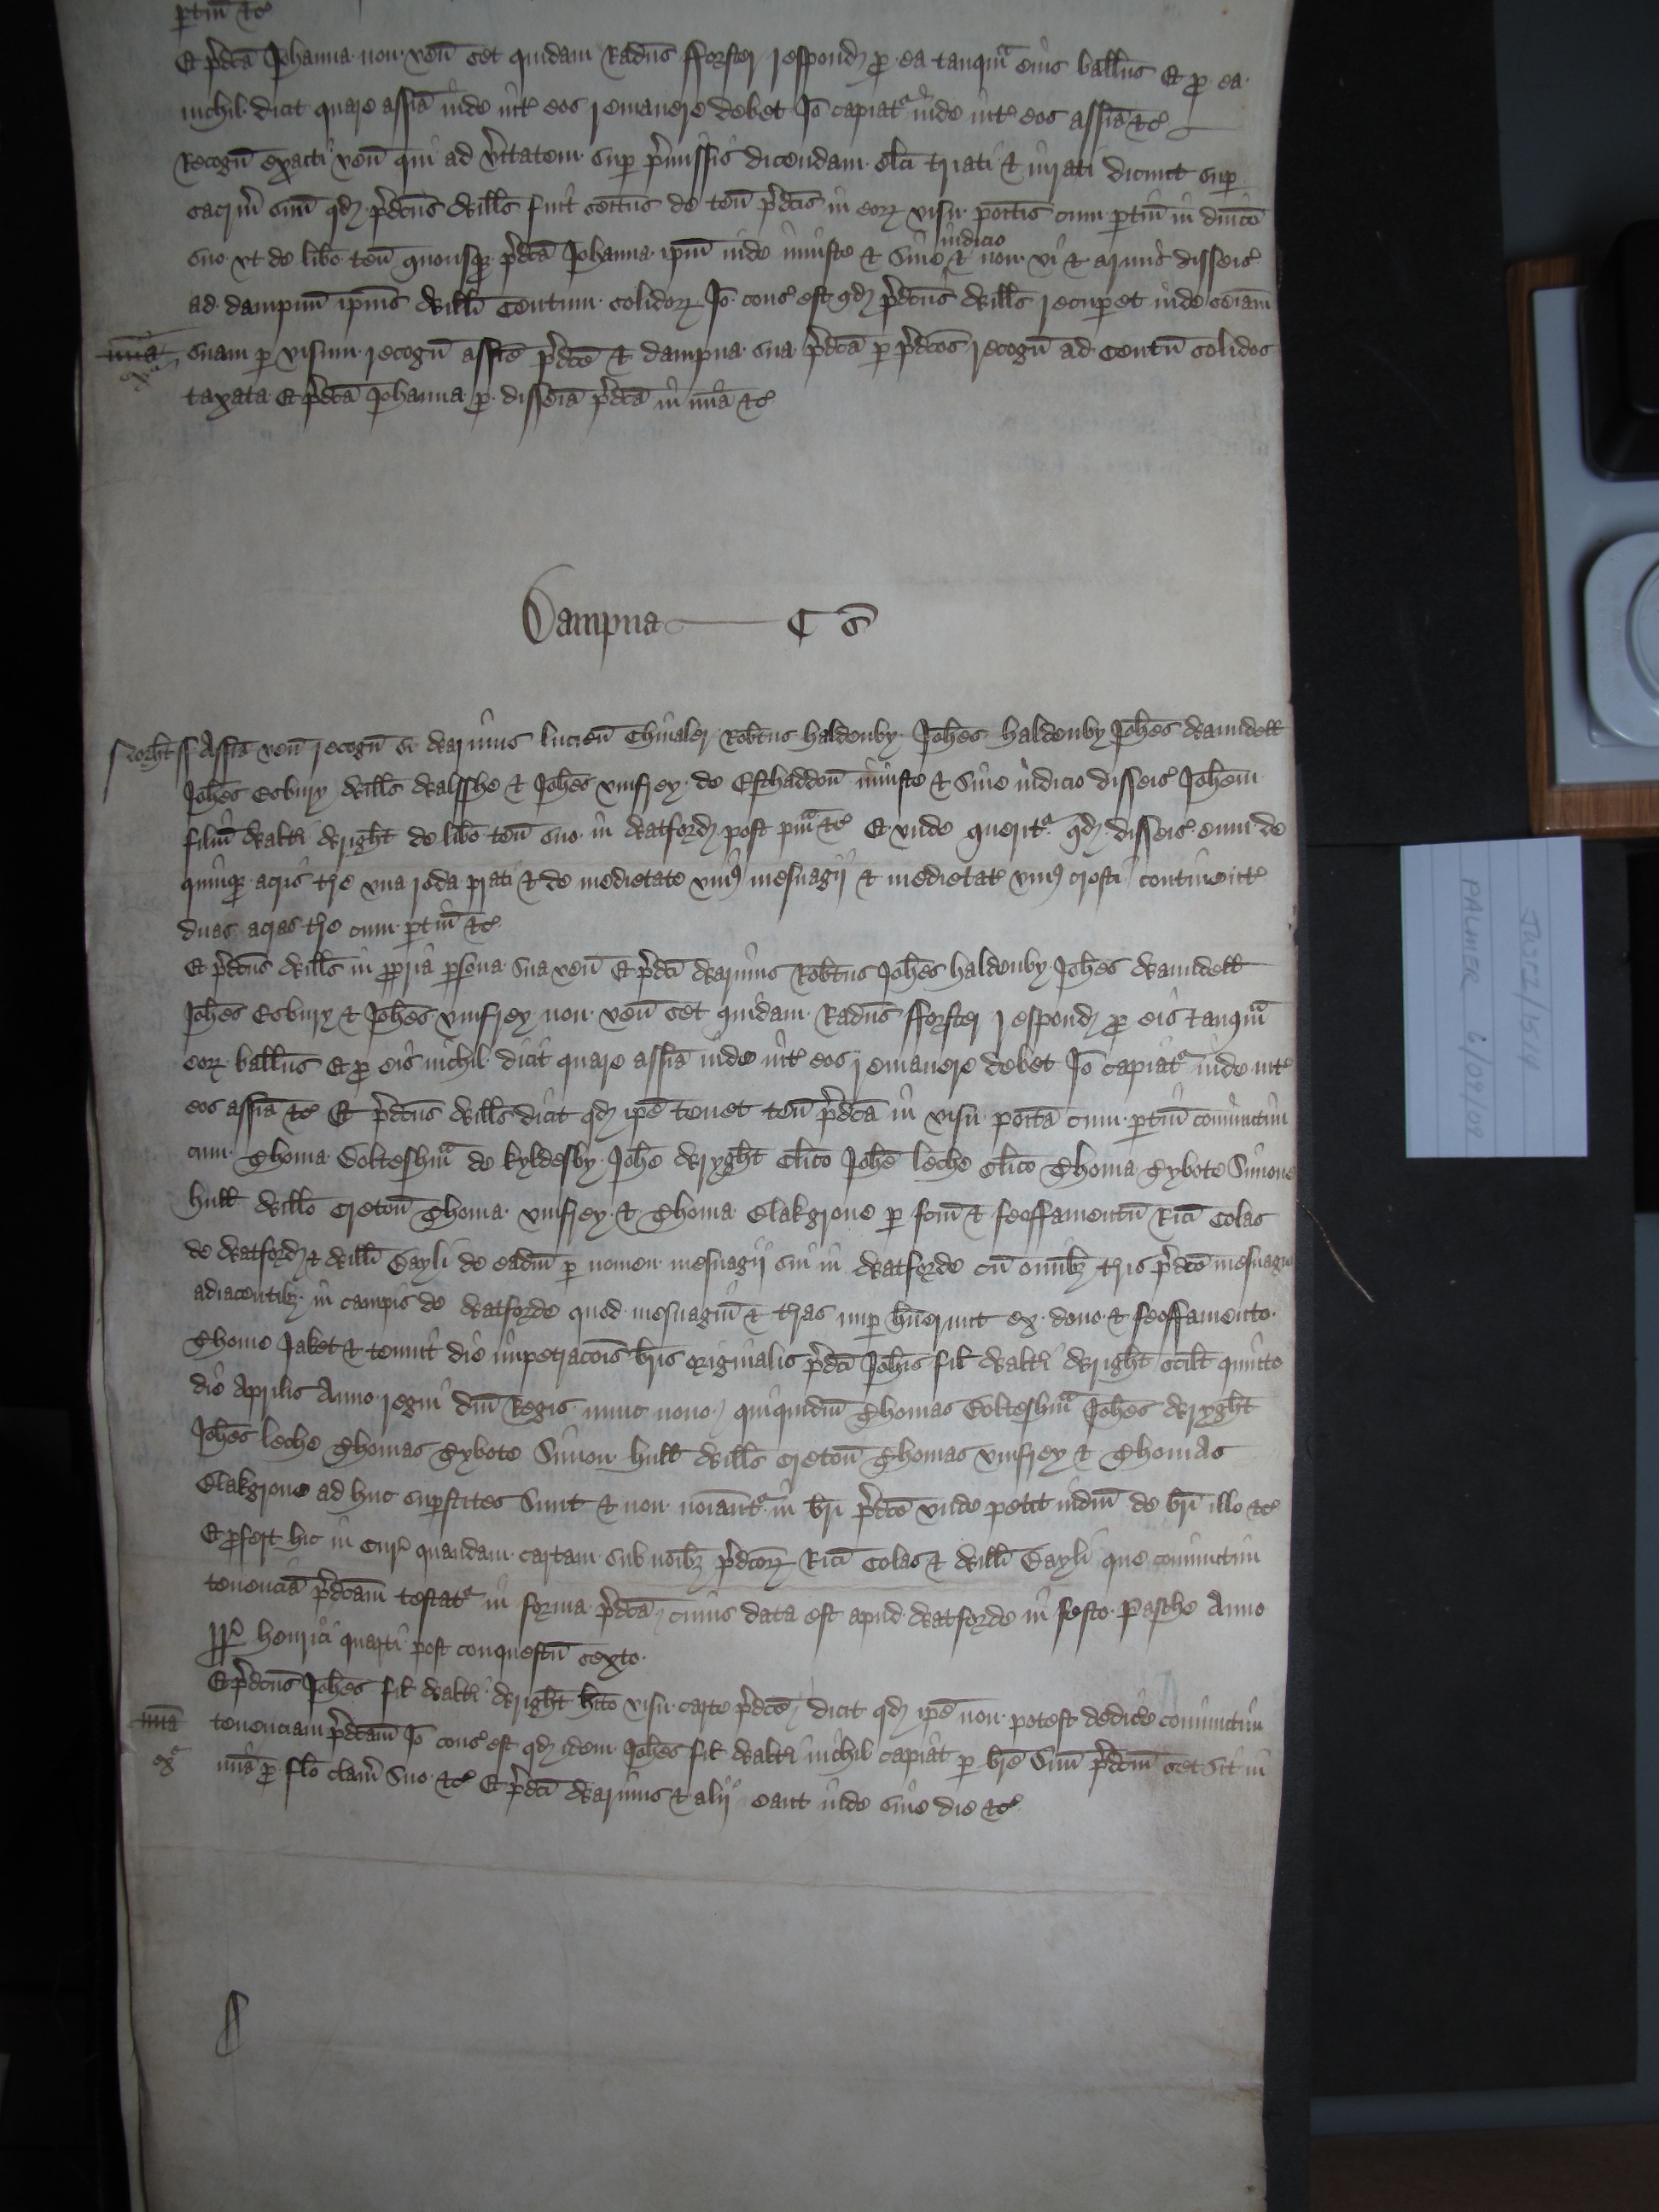 ptin̄ ⁊c̉
Et p̉dc̄a Joħanna non ven̄ set quidam Rad̄us fforster respond̛ p ea tanqᵃm eius ball̄us Et p ea
nichil dicit quare assīa inde int̉ eos remanere debet Jō capiatᵃ inde int̉ eos assīa ⁊c̉
Recogn̄ exacti ven̄ qui ad v̉itatem sup p̉missis dicendam elc̄i triati ⁊ iurati dicunt sup
sacrm̉ suū qd̛ p̉dc̄us Will̄s fuit seit̄us de ten̄ p̉dc̄is in eoꝝ visu poītis cum ptin̄ in dn̄ico
suo vt de lib̄o ten̄ quousqꝫ p̉dc̄a Joħanna ip̄m inde iniuste ⁊ sine iudicio ⁊ non vi ⁊ armis disseis̉
ad dampnū ip̄ius Will̄i Centum solidoꝝ Jō cons̉ est qd̛ p̉dc̄us Will̄s recupet inde sēiam
suam p visum recogn̄ assīe p̉dc̄e ⁊ dampna sua p̉dc̄a p p̉dc̄os recogn̄ ad Centū solidos
mīa
exᵃ
taxata Et p̉dc̄a Joħanna p disseīa p̉dc̄a in mīa ⁊c̉
Dampna C s̄
Norħt ss Assīa ven̄ recogn̄ si Warinus lucien̄ Chiualer Rob̄tus haldenby Joħes haldenby Joħes Waundell
Joħes Esbury Will̄s Walsshe ⁊ Joħes vmfrey de Esthaddon̄ iniuste ⁊ sine iudicio disseis̉ Joħem
filiū Walt̄i Wrigħt de lib̄o ten̄ suo in Watford̛ post pm̄ᵃ ⁊c̉ Et vnde queritᵃ qd̛ disseis̉ eum de
quinqꝫ acris t̉re vna roda prati ⁊ de medietate vni⁹ mesuagij ⁊ medietat̉ vni⁹ crofti continent̉
duas acras t̉re cum ptin̄ ⁊c̉
Et p̉dc̄us Will̄s in propria psona sua ven̄ Et p̉dc̄i Warinus Rob̄tus Joħes haldenby Joħes Waundell
Joħes Esbury ⁊ Joħes vmfrey non ven̄ set quidam Rad̄us fforster respond̛ p eis tanqᵃm
eoꝝ ball̄us Et p eis nichil dicit quare assīa inde int̉ eos remanere debet Jō capiatᵃ inde int̉
eos assīa ⁊c̉ Et p̉dc̄us Will̄s dicit qd̛ ip̄e tenet ten̄ p̉dc̄a in visu poīta cum ptin̄ coniunctim
cum Thoma Colteshmᵃ de kyldesby Joħe Wrygħt cl̄ico Joħe leche cl̄ico Thoma Tybote Simone
hull Will̄o Creton̄ Thoma vmfrey ⁊ Thoma Clakgrone p fc̄m ⁊ feoffamentū Ric̄i Colas
de Watford̛ ⁊ Will̄i Dayli de ead̄m p nomen mesuagij sui in Watforde cū omībꝫ t̉ris p̉dc̄o mesuagio
adiacentibꝫ in campis de Watforde quod mesuagiū ⁊ t̉ras nup hūerunt ex dono ⁊ feoffamento
Thome Jaket ⁊ tenuit die impetrac̄ois br̄is originalis p̉dc̄i Joħis fil̄ Walt̄i Wrigħt scil̄t quinto
die Aprilis Anno regni dn̄i Regis nunc nono quiquid̄m Thomas Colteshmᵃ Joħes Wrygħt
Joħes leche Thomas Tybote Simon hull Will̄s Creton̄ Thomas vmfrey ⁊ Thomas
Clakgrone ad huc supstites sunt ⁊ non noīantᵃ in br̄i p̉dc̄o vnde petit iudm̄ de br̄i illo ⁊c̉
Et pfert hic in Cur̉ quandam cartam sub noībꝫ p̉dc̄oꝝ Ric̄i Colas ⁊ Will̄i Dayli que coniunctim
tenenciā p̉dc̄am testatᵃ in forma p̉dc̄a cuius data est apud Watforde in festo Pasche Anno
ꝶꝶ henrici quarti post conquestū sexto
Et p̉dc̄us Joħes fil̄ Walt̄i Wrigħt hīto visu carte p̉dc̄e dicit qd̛ ip̄e non potest dedic̉e coniunctim
tenenciam p̉dc̄am Jō cons̉ est qd̛ idem Joħes fil̄ Walt̄i nichil capiat p br̄e suū p̉dc̄m set sit in
mīa
exᵃ
mīa p fl̄o clam̉ suo ⁊c̉ Et p̉dc̄i Warinus ⁊ alij eant inde sine die ⁊c̉
JUST 2/1514
PALMER 6/09/08